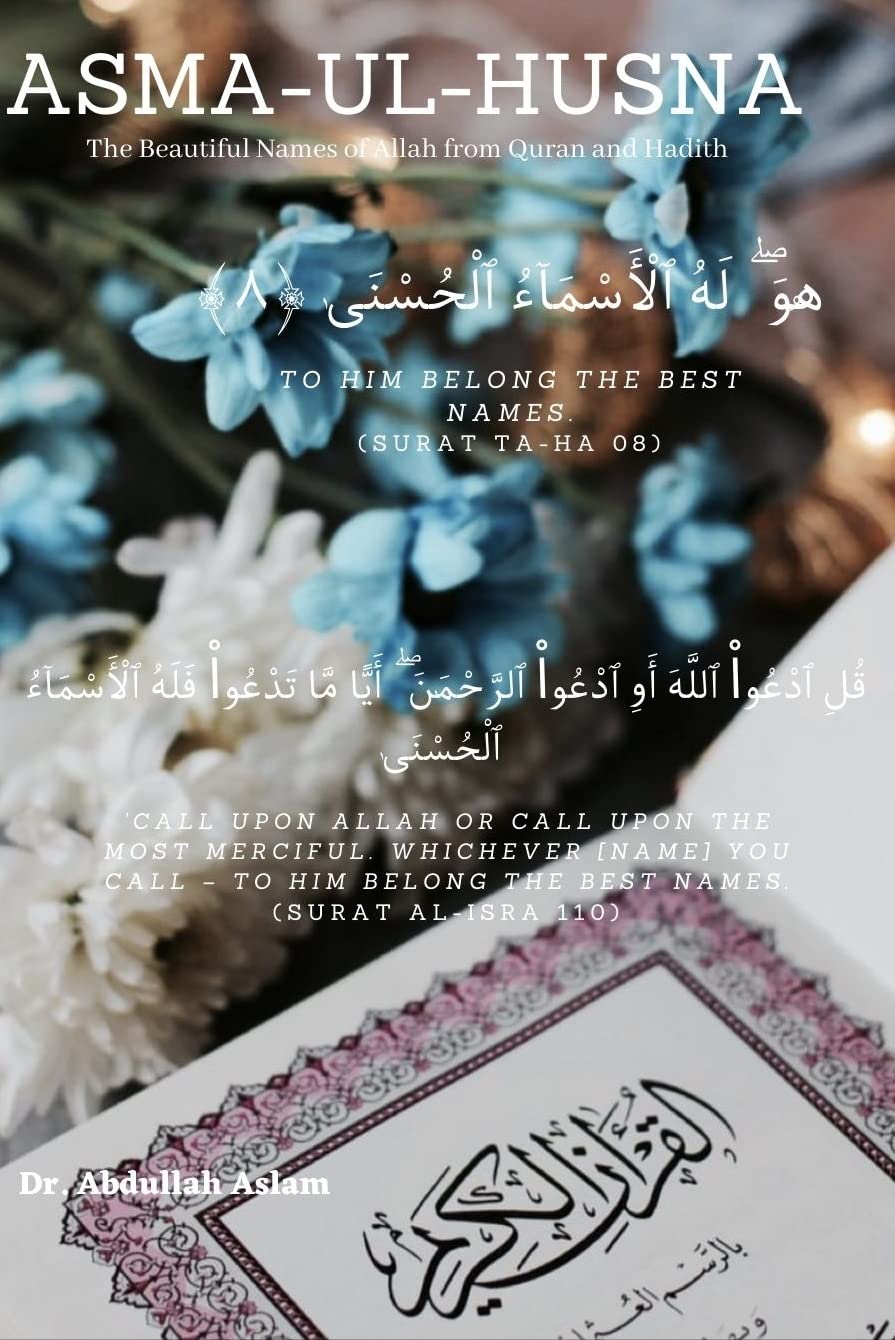 ASMA-UL-HUSNA
The Beautiful Names of Allah from Quran and Hadith
هُوَ ۖ لَهُ ٱلْأَسْمَآءُ ٱلْحُسْنَىٰ ﴿٨﴾
TO HIM BELONG THE BEST
NAMES.
(SURAT TA-HA 08)
قُلِ ٱدْعُوا۟ ٱللَّهَ أَوِ ٱدْعُوا۟ ٱلرَّحْمَٰنَ ۖ أَيًّا مَّا تَدْعُوا۟ فَلَهُ ٱلْأَسْمَآءُ
ٱلْحُسْنَىٰ
'CALL UPON ALLAH OR CALL UPON THE
MOST MERCIFUL. WHICHEVER [NAME] YOU
CALL – TO HIM BELONG THE BEST NAMES.
(SURAT AL-ISRA 110)
Dr. Abdullah Aslam
القرآن الكريم
بالرَّسْمِ